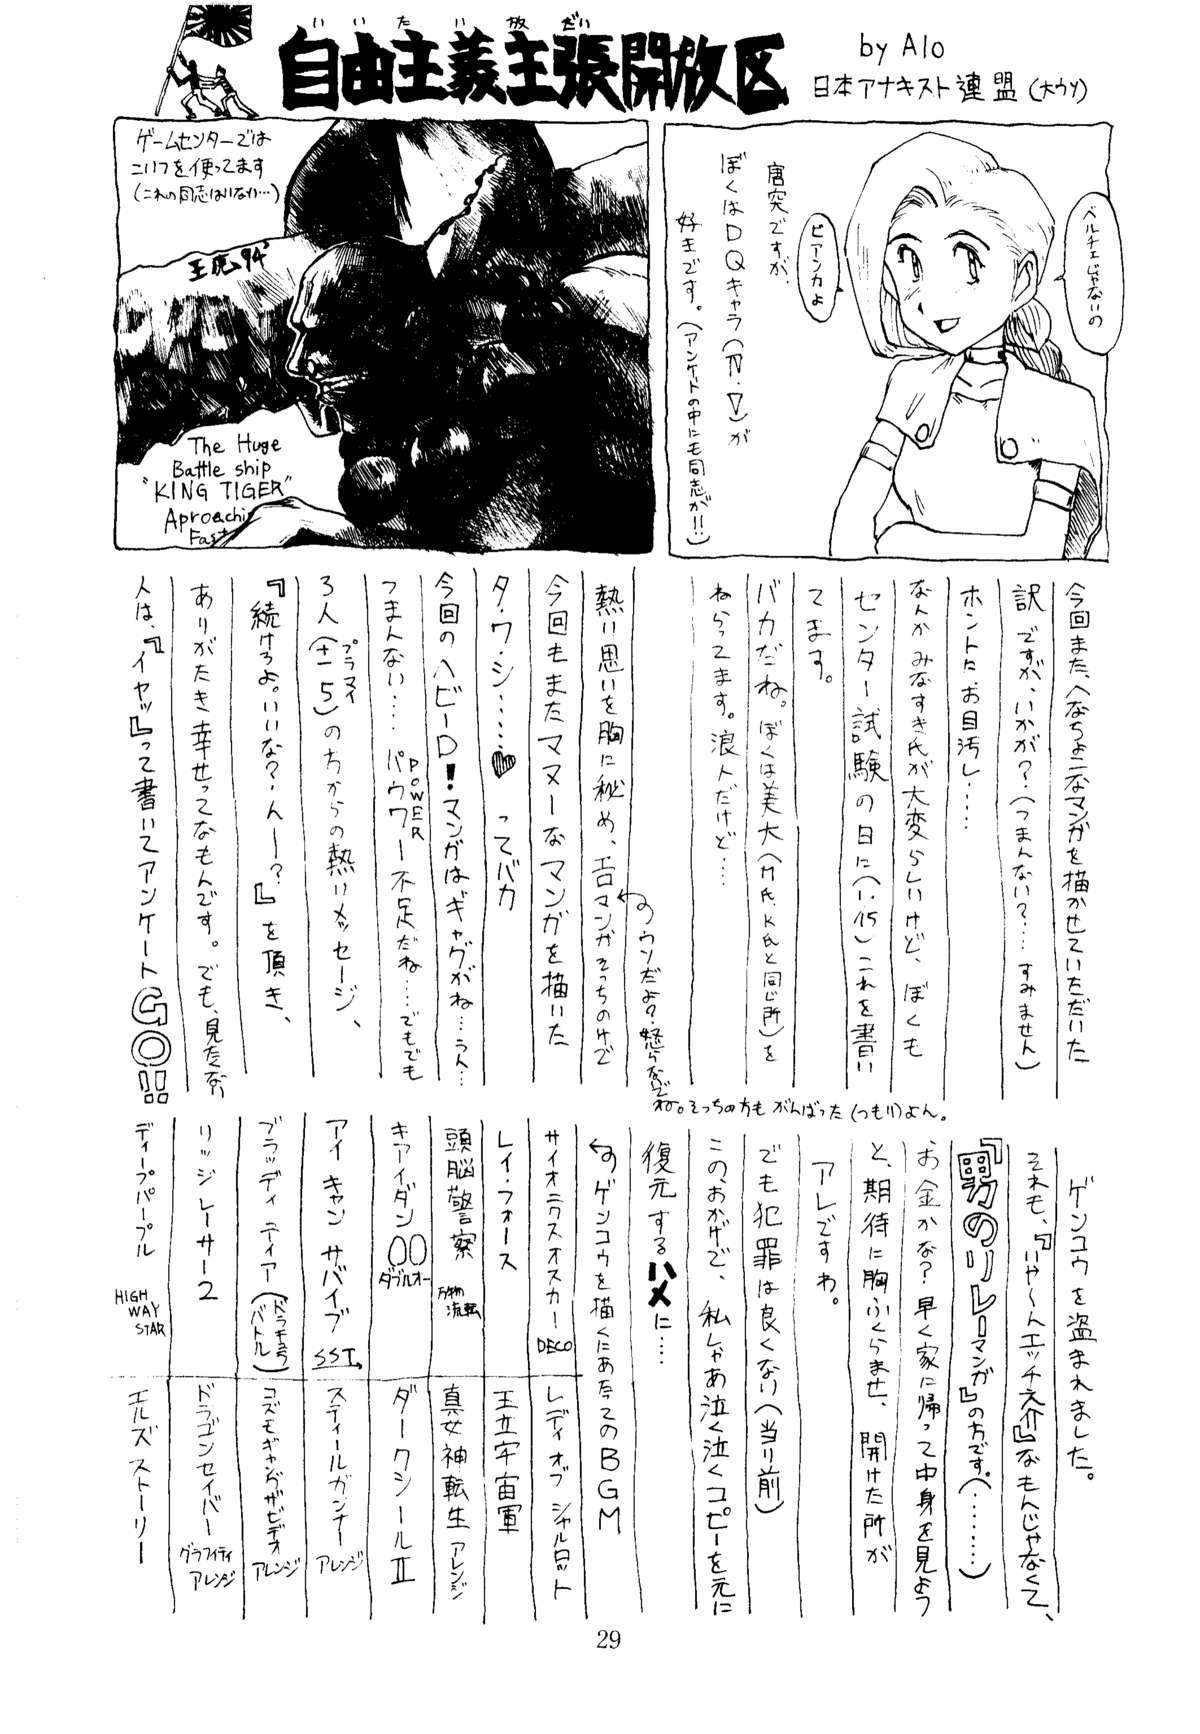 いいたい放だい
自由主義主張開放区
by Alo
日本アナキスト連盟(大ウソ)
ベルチェじゃないの
ビアンカよ
唐突ですが、
ぼくはDQキャラ(Ⅳ.Ⅴ)が
好きです。(アンケートの中にも同志が!!)
ゲームセンターでは
こいつを使ってます
(これの同志はいない…)
94'
The Huge
Battle ship
"KING TIGER"
Aproachi
Fast
今回また、へなちょこなマンガを描かせていただいた
訳ですが、いかが?(つまんない?…すみません)
ホントに、お目汚し……
なんか みなすき氏が大変らしいけど、ぼくも
センター試験の日に(1.15)これを書い
てます。
バカだね。ぼくは美大(M氏、K氏と同じ所)を
ねらってます。浪人だけど……
熱い思いを胸に秘め、エロマンガそっちのけで
今回もまたマヌーなマンガを描いた
タ・ワ・シ……♥ ってバカ
のウソだよ?怒らないで
ね。そっちの方も がんばった(つもり)よん。
今回のヘビーD!マンガはギャグがね…うん…
つまんない…… パウワー不足だね……でもでも
POWER
3人(±5)の方からの熱いメッセージ、
プラマイ
『続けろよ。いいな?・んー?』を頂き、
ありがたき幸せってなもんです。でも、見たくない
人は、『イヤッ』って書いてアンケートGO!!
ゲンコウを盗まれました。
それも、『いや〜んエッチ介』なもんじゃなくて、
『男のリレーマンガ』の方です。(………)
お金かな?早く家に帰って中身を見よう
と、期待に胸ふくらませ、開けた所が
アレですわ。
でも犯罪は良くない(当り前)
この、おかげで、私しゃあ泣く泣くコピーを元に
復元するハメに……
のゲンコウを描くにあたってのBGM
サイオニクスオスカー DECO
レイ・フォース
頭脳警察 万物流転
キアイダン00 ダブルオー
アイ キャン サバイブ SST
ブラッディ ティアー(ドラキュラバトル)
リッジレーサー2
ディープパープル HIGH WAY STAR
レディ オブ シャルロット
王立宇宙軍
真女神転生 アレンジ
ダークシールⅡ
スティールガンナー アレンジ
コズモギャングザビデオ アレンジ
ドラゴンセイバー グラフィティアレンジ
エルズストーリー
29